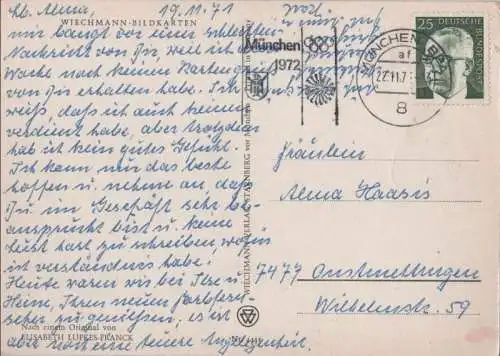 Lb. Alma, 19.11.71
WIECHMANN-BILDKARTEN
mir bangt vor einer schlimmen
Nachricht von Dir weil ich diese
Woche noch keinen Kartengruß
von Dir erhalten habe. Ich
weiß, daß ich auch keinen
verdient habe, aber trotzdem
hab ich kein gutes Gefühl.
Ich kann nur das beste
hoffen u. nehme an, daß
Du im Geschäft sehr be-
ansprucht bist u. keine
Lust hast zu schreiben, was
ist verständnis habe.
Heute waren wir bei Ilse u.
Heine, Ihren neuen Farbfern-
seher zu genießen, es ist
aber noch eine teuere Angelegenheit.
Nach einem Original von
ELISABETH LÜPKES-FRANCK
WIECHMANN VERLAG STARNBERG vor München
München
1972
MÜNCHEN
af
8
25
DEUTSCHE
BUNDESPOST
Fräulein
Alma Haasis
7477 Onstmettingen
Wilhelmstr. 59